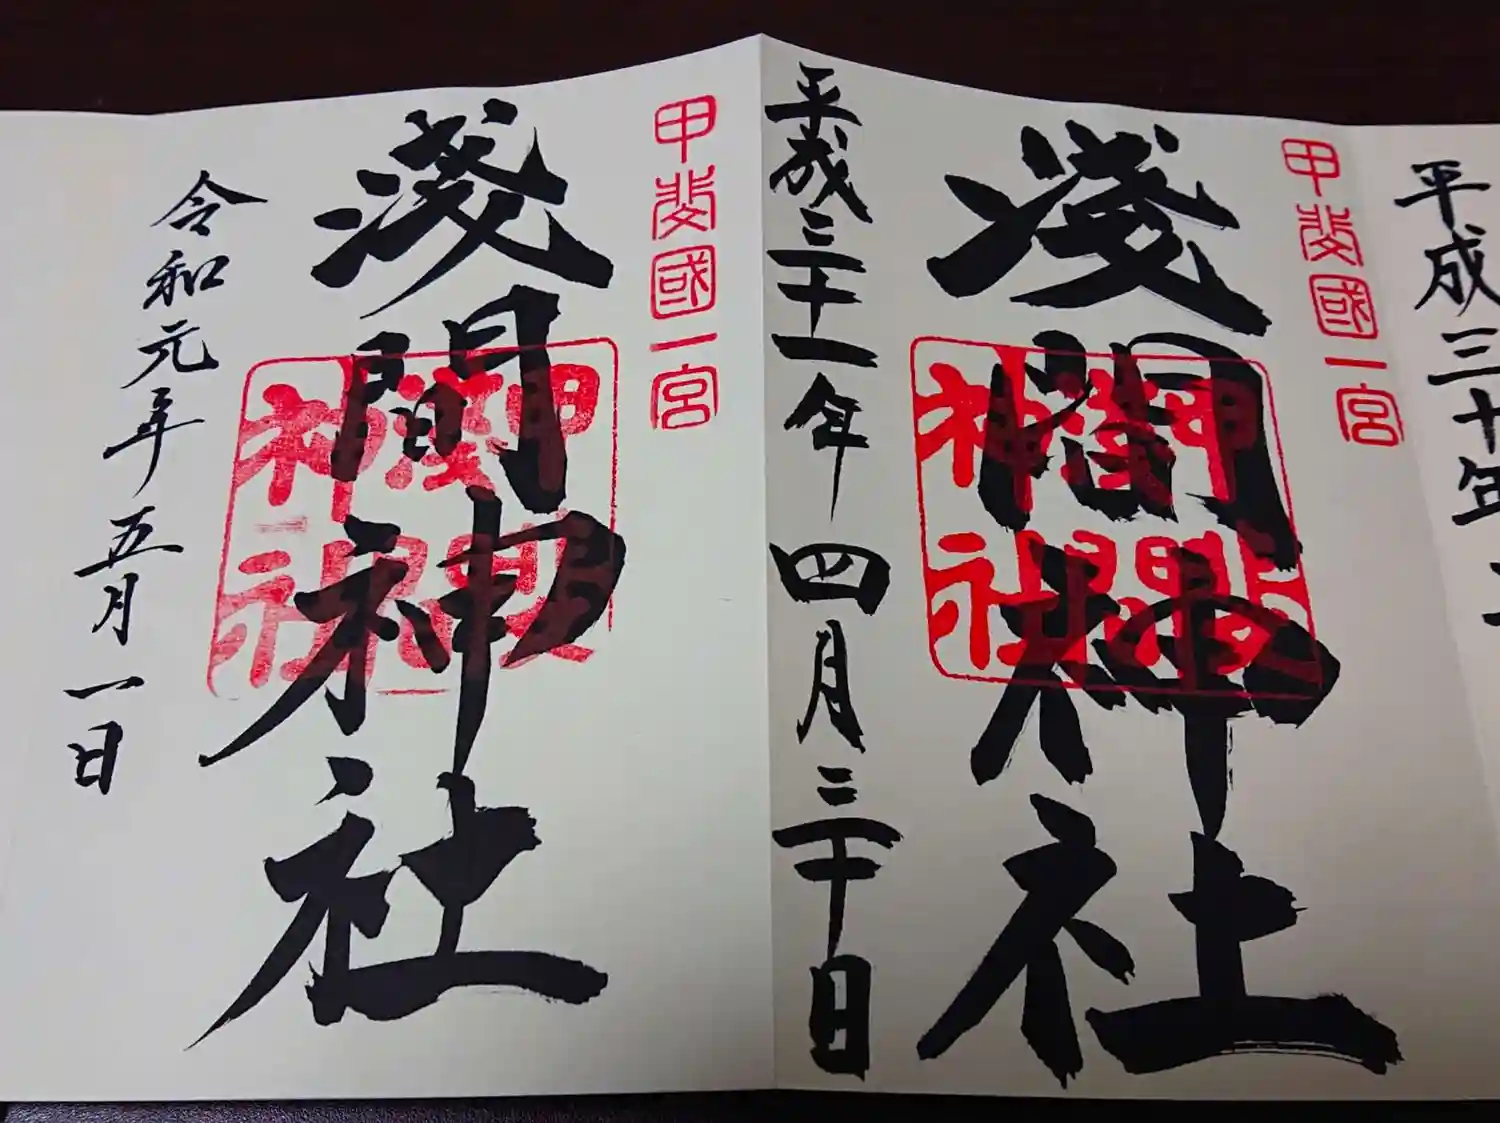 平成三十年
甲斐國一宮
淺間神社
甲斐
淺間
神社
平成三十一年 四月三十日
甲斐國一宮
淺間神社
甲斐
淺間
神社
令和元年 五月一日